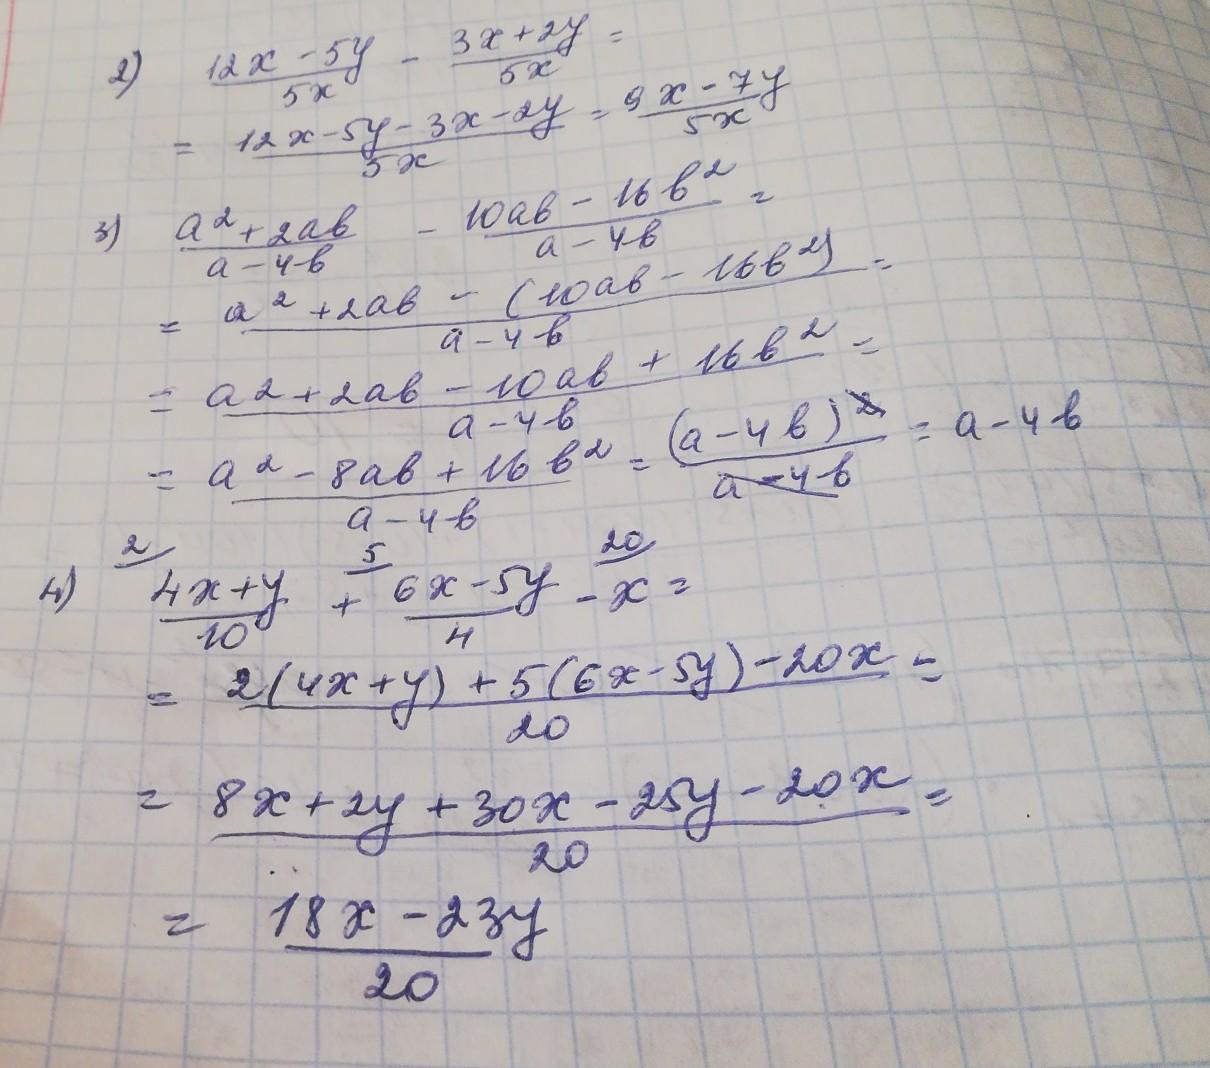 2) (12x - 5y)/(5x) - (3x + 2y)/(5x) =
= (12x - 5y - 3x - 2y)/(5x) = (9x - 7y)/(5x)
3) (a² + 2ab)/(a - 4b) - (10ab - 16b²)/(a - 4b) =
= (a² + 2ab - (10ab - 16b²))/(a - 4b) =
= (a2 + 2ab - 10ab + 16b²)/(a - 4b) =
= (a² - 8ab + 16b²)/(a - 4b) = (a - 4b)²/(a - 4b) = a - 4b
2 5 20
4) (4x + y)/10 + (6x - 5y)/4 - x =
= (2(4x + y) + 5(6x - 5y) - 20x)/20 =
= (8x + 2y + 30x - 25y - 20x)/20 =
= (18x - 23y)/20